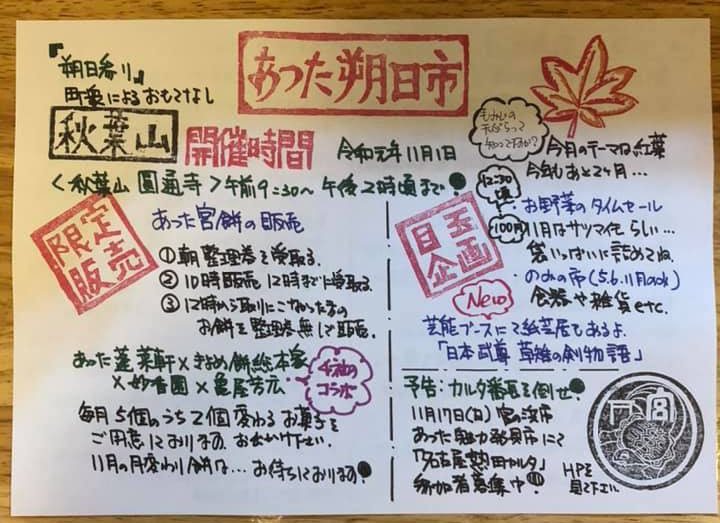 『朔日参り』
町衆によるおもてなし
あつた朔日市
秋葉山
開催時間
令和元年11月1日
<秋葉山 圓通寺>午前9:30〜午後2時頃まで
もみじの
天ぷらって
知ってますか?
今月のテーマは紅葉
今年もあと2ヶ月...
限定
販売
あった宮餅の販売
①朝整理券を受取る。
②10時販売 12時までに受取る。
③12時から取りにこなかった方の
お餅を整理券無しで販売。
あった蓬莱軒×きよめ餅総本家
×妙香園×亀屋芳広
4社の
コラボ
毎月5個のうち2個変わるお菓子を
ご用意しております。お出かけ下さい。
11月の月変わり餅は...お待ちしております。
目玉
企画
12:30頃
お野菜のタイムセール
100円
11月はサツマイモらしい...
袋いっぱいに詰めてね
のみの市(5.6.11月のみ)
New
食器や雑貨etc.
芸能ブースにて紙芝居もあるよ。
「日本武尊 草薙の剣物語」
予告:カルタ番長を倒せ
11月17日(日)宮の浜市
あった魅力発見市にて
「名古屋熱田カルタ」
参加者募集中!!
宮
HPを
見て下さい